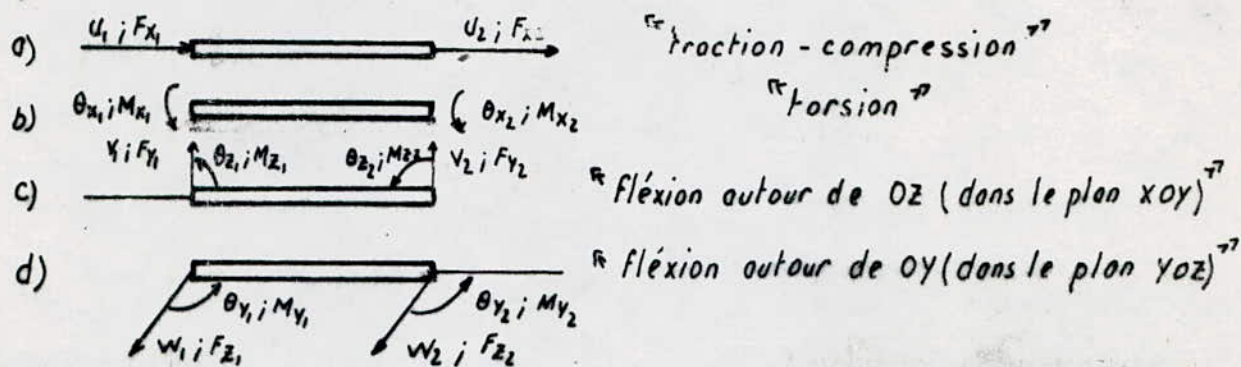 a) u₁ ; Fx₁ u₂ ; Fx₂ "traction - compression"
b) θx₁ ; Mx₁ θx₂ ; Mx₂ "torsion"
c) V₁ ; Fy₁ θz₁ ; Mz₁ θz₂ ; Mz₂ V₂ ; Fy₂ "fléxion autour de OZ (dans le plan XOY)"
d) "fléxion autour de OY (dans le plan YOZ)"
θy₁ ; My₁ θy₂ ; My₂
W₁ ; Fz₁ W₂ ; Fz₂